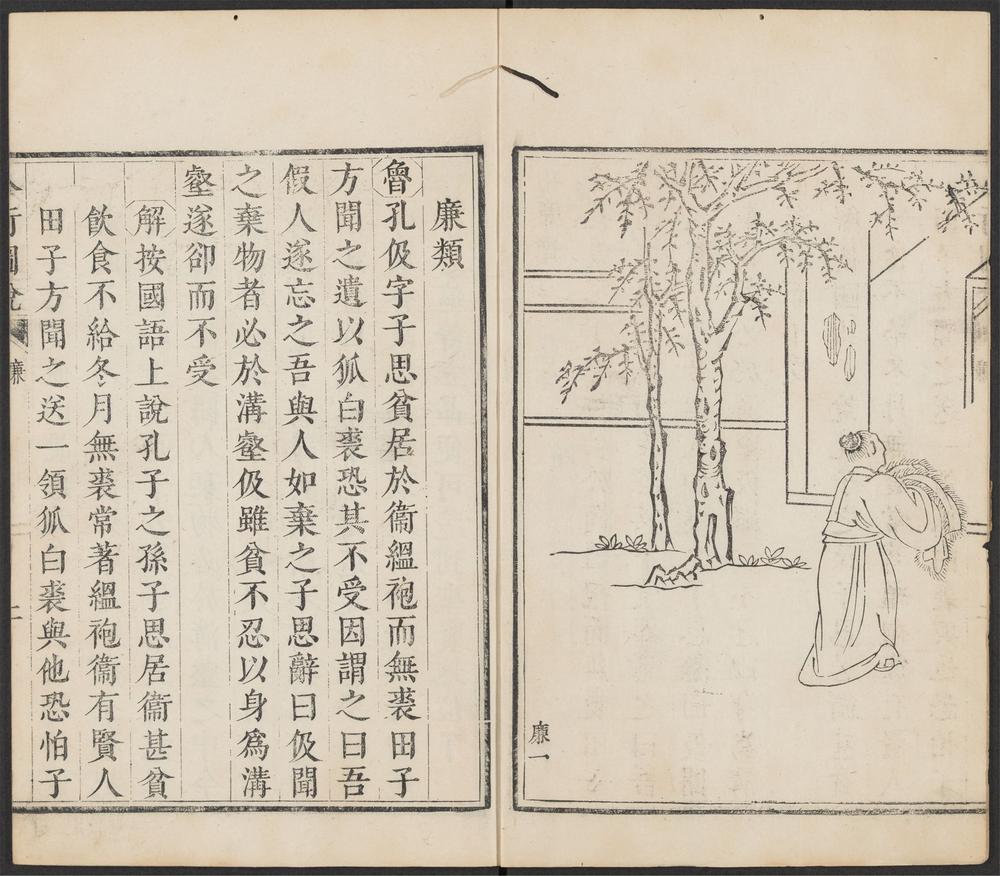 廉一
廉類
魯孔伋字子思貧居於衞縕袍而無裘田子
方聞之遺以狐白裘恐其不受因謂之曰吾
假人遂忘之吾與人如棄之子思辭曰伋聞
之棄物者必於溝壑伋雖貧不忍以身爲溝
壑遂卻而不受
解按國語上說孔子之孫子思居衞甚貧
飲食不給冬月無裘常著縕袍衞有賢人
田子方聞之送一領狐白裘與他恐怕子